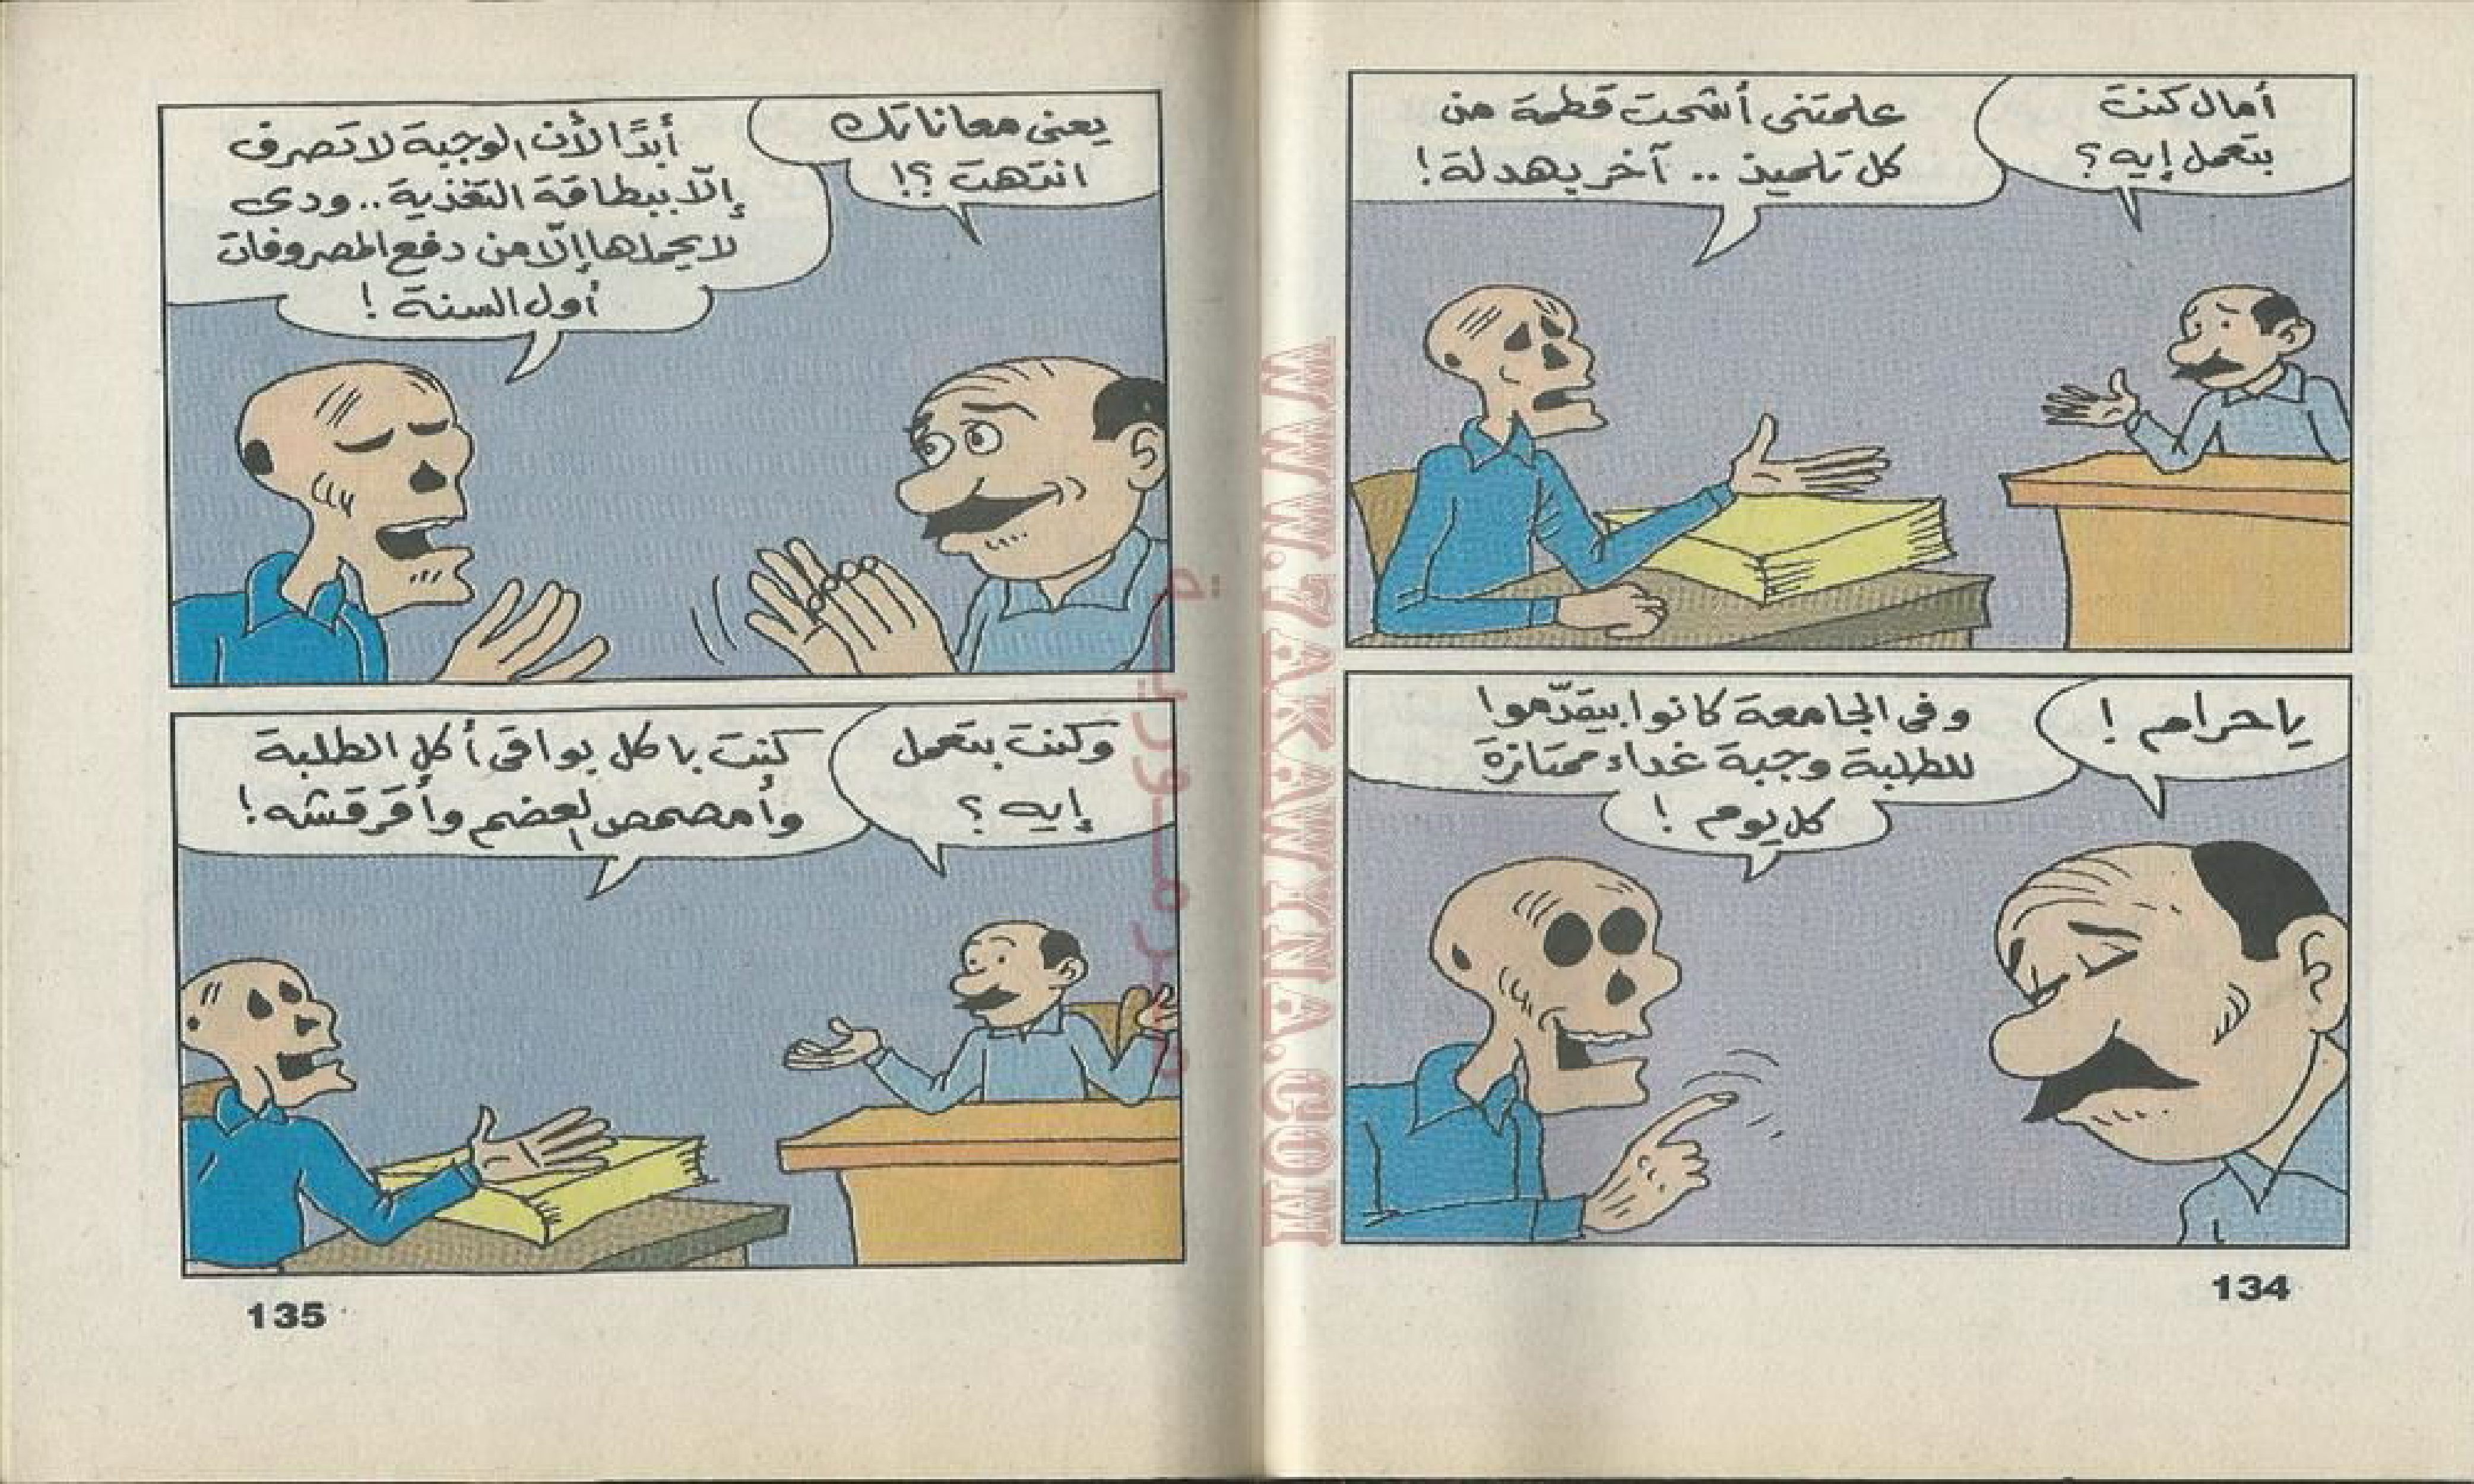 أمال كنت
بتعمل إيه؟
علمتنى أشحت قطمة من
كل تلميذ .. آخر بهدلة!
ياحرام!
وفى الجامعة كانوا بيقدّموا
للطلبة وجبة غداء ممتازة
كل يوم!
134
يعنى معاناتك
انتهت؟!
أبدًا لأن الوجبة لا تصرف
إلّا ببطاقة التغذية.. ودى
لا يحملها إلّا من دفع المصروفات
أول السنة!
وكنت بتعمل
إيه؟
كنت باكل بواقى أكل الطلبة
وأمصمص العضم وأقرقشه!
135
WWW.ZAKAWINA.COM